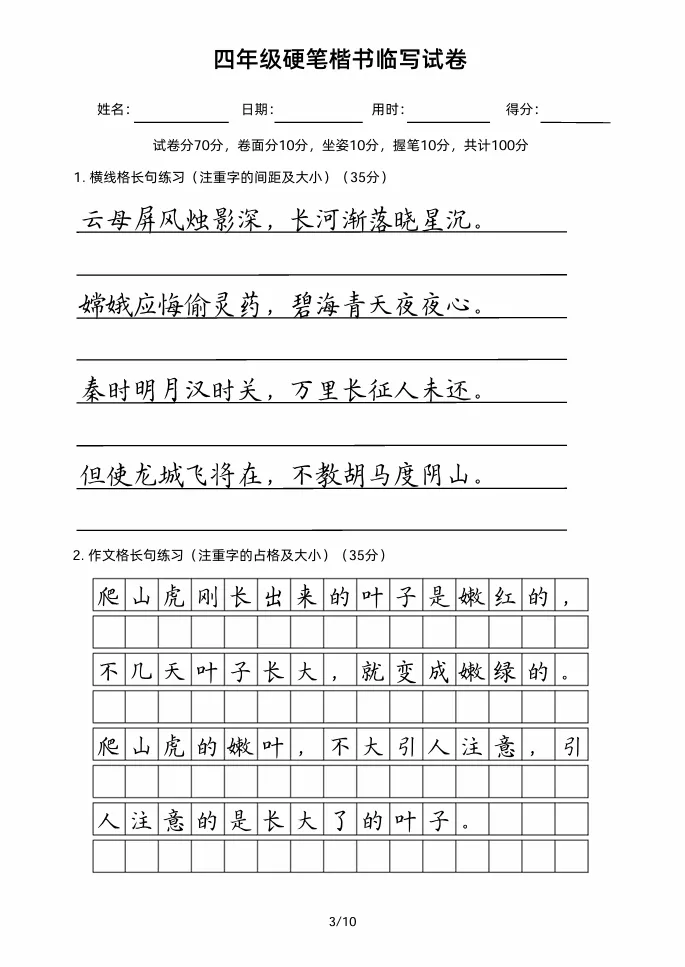 四年级硬笔楷书临写试卷
姓名： 日期： 用时： 得分：
试卷分70分，卷面分10分，坐姿10分，握笔10分，共计100分
1. 横线格长句练习（注重字的间距及大小）（35分）
云母屏风烛影深，长河渐落晓星沉。
嫦娥应悔偷灵药，碧海青天夜夜心。
秦时明月汉时关，万里长征人未还。
但使龙城飞将在，不教胡马度阴山。
2. 作文格长句练习（注重字的占格及大小）（35分）
爬山虎刚长出来的叶子是嫩红的，
不几天叶子长大，就变成嫩绿的。
爬山虎的嫩叶，不大引人注意，引
人注意的是长大了的叶子。
3/10